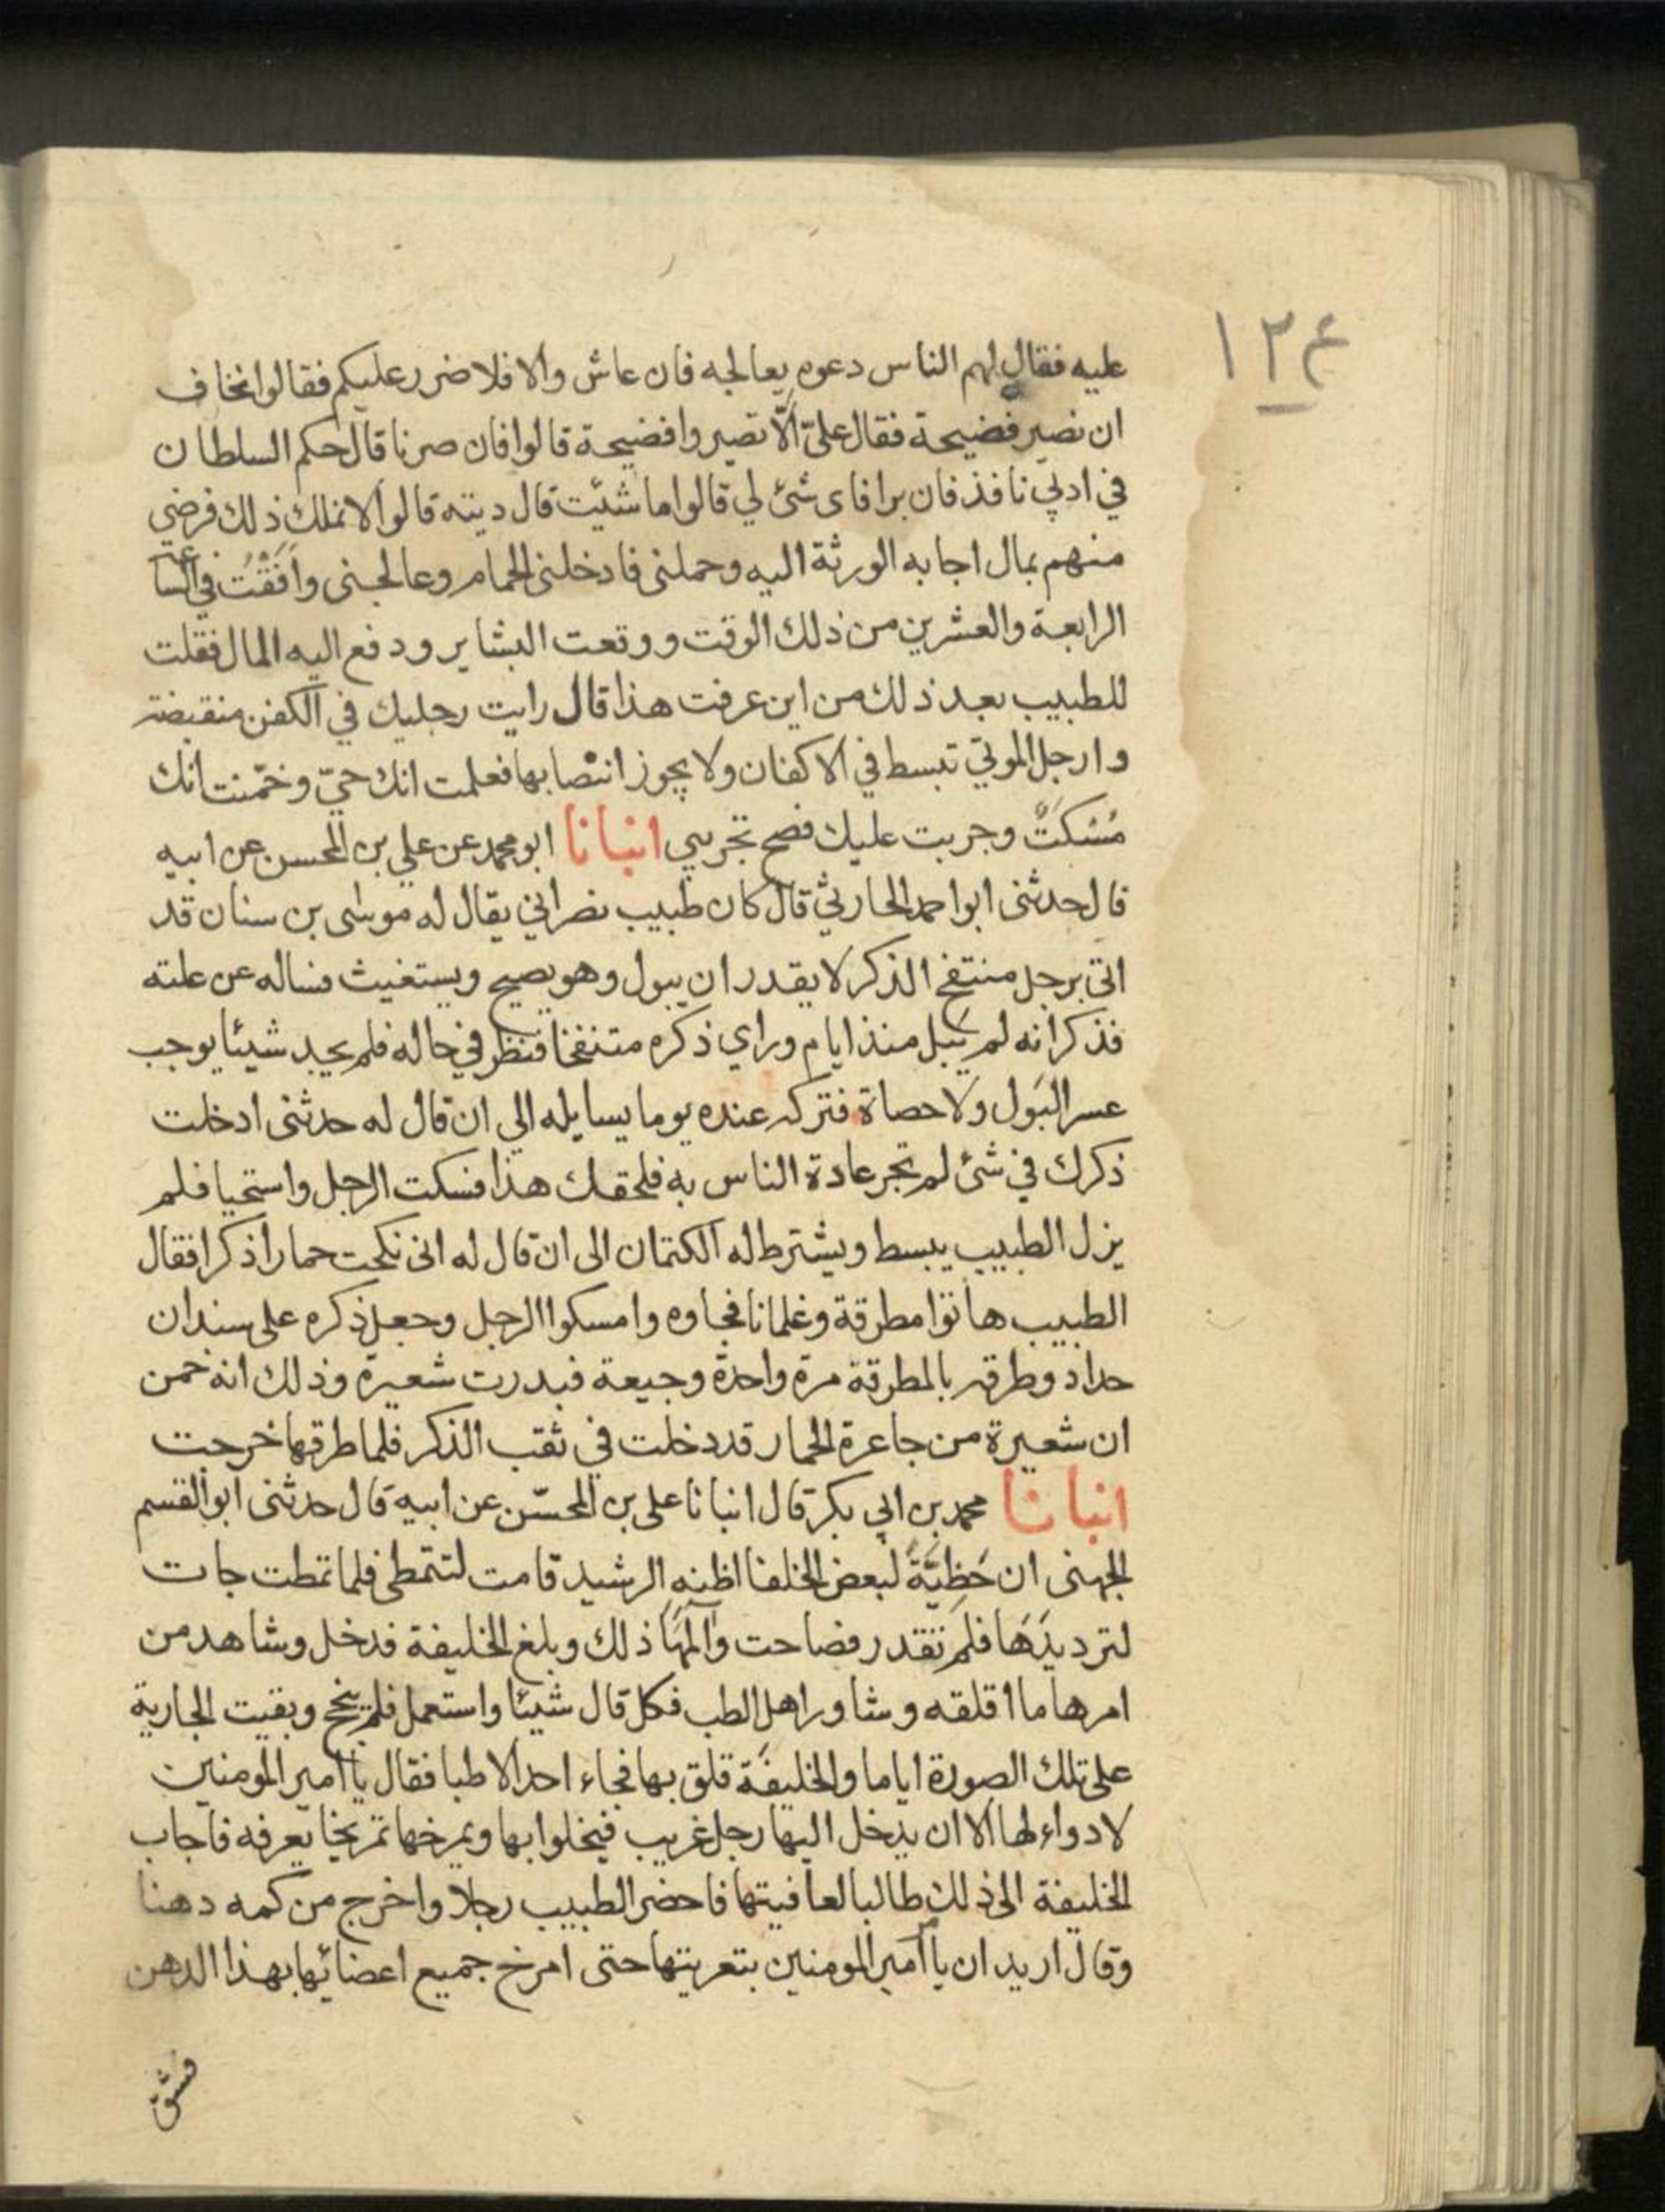 ١٢٤
عليه فقال لهم الناس دعوه يعالجه فان عاش والا فلا ضرر عليكم فقالوا نخاف
ان نصير فضيحة فقال عليّ الّا تصيروا فضيحة قالوا فان صرنا قال حكم السلطان
في ادبي نافذ فان برا فاى شئ لي قالوا ما شئت قال ديته قالوا لا نملك ذلك فرضي
منهم بمال اجابه الورثة اليه وحملني فادخلني الحمام وعالجني وافقت في الساعة
الرابعة والعشرين من ذلك الوقت ووقعت البشاير ودفع اليه المال فقلت
للطبيب بعد ذلك من اين عرفت هذا قال رايت رجليك في الكفن منتصبة
وارجل الموتي تبسط في الاكفان ولا يجوز انتصابها فعلمت انك حيّ وخمّنت انك
مُسْكَتٌ وجربت عليك فصح تجربيي انبانا ابو محمد عن علي بن المحسن عن ابيه
قال حدثنى ابو احمد الحارثي قال كان طبيب نصراني يقال له موسى بن سنان قد
اتى برجل منتفخ الذكر لا يقدر ان يبول وهو يصيح ويستغيث فساله عن علته
فذكر انه لم يبل منذ ايام وراي ذكره متنفخا فنظر في حاله فلم يجد شيئا يوجب
عسر البول ولا حصاة فتركه عنده يوما يسايله الي ان قال له حدثنى ادخلت
ذكرك في شئ لم تجر عادة الناس به فلحقك هذا فسكت الرجل واستحيا فلم
يزل الطبيب يبسط ويشترط له الكتمان الى ان قال له انى نكحت حمارا ذكرا فقال
الطبيب هاتوا مطرقة وغلمانا فجاوه وامسكوا الرجل وجعل ذكره على سندان
حداد وطرقه بالمطرقة مرة واحدة وجيعة فبدرت شعيرة وذلك انه خمن
ان شعيرة من جاعرة الحمار قد دخلت في ثقب الذكر فلما طرقها خرجت
انبانا محمد بن ابي بكر قال انبانا على بن المحسّن عن ابيه قال حدثنى ابو القسم
الجهنى ان حَظِيَّةً لبعض الخلفا اظنه الرشيد قامت لتتمطى فلما تمطت جات
لترد يدَهَا فلم تقدر فصاحت وآلمها ذلك وبلغ الخليفة فدخل وشاهد من
امرها ما اقلقه وشاور اهل الطب فكل قال شيئا واستعمل فلم ينجح وبقيت الجارية
على تلك الصورة اياما والخليفة قلق بها فجاء احد الاطبا فقال يا امير المومنين
لا دواء لها الا ان يدخل اليها رجل غريب فيخلوا بها ويمرخها تمريخا يعرفه فاجاب
الخليفة الى ذلك طالبا لعافيتها فاحضر الطبيب رجلا واخرج من كمه دهنا
وقال اريد ان يا امير المومنين بتعريتها حتى امرخ جميع اعضائها بهذا الدهن
فشق